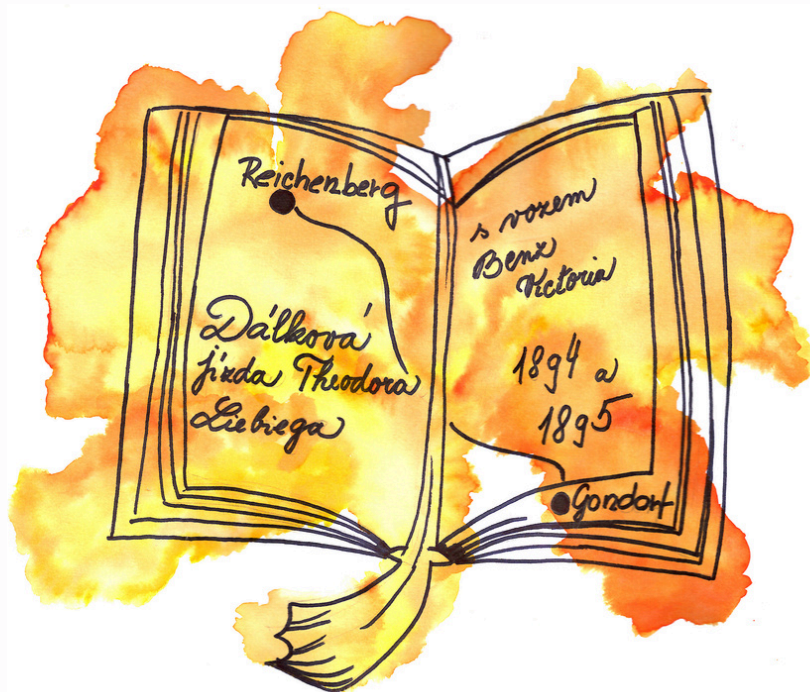 Reichenberg
Dálková
jízda Theodora
Liebiega
s vozem
Benz
Victoria
1894 a
1895
Gondorf